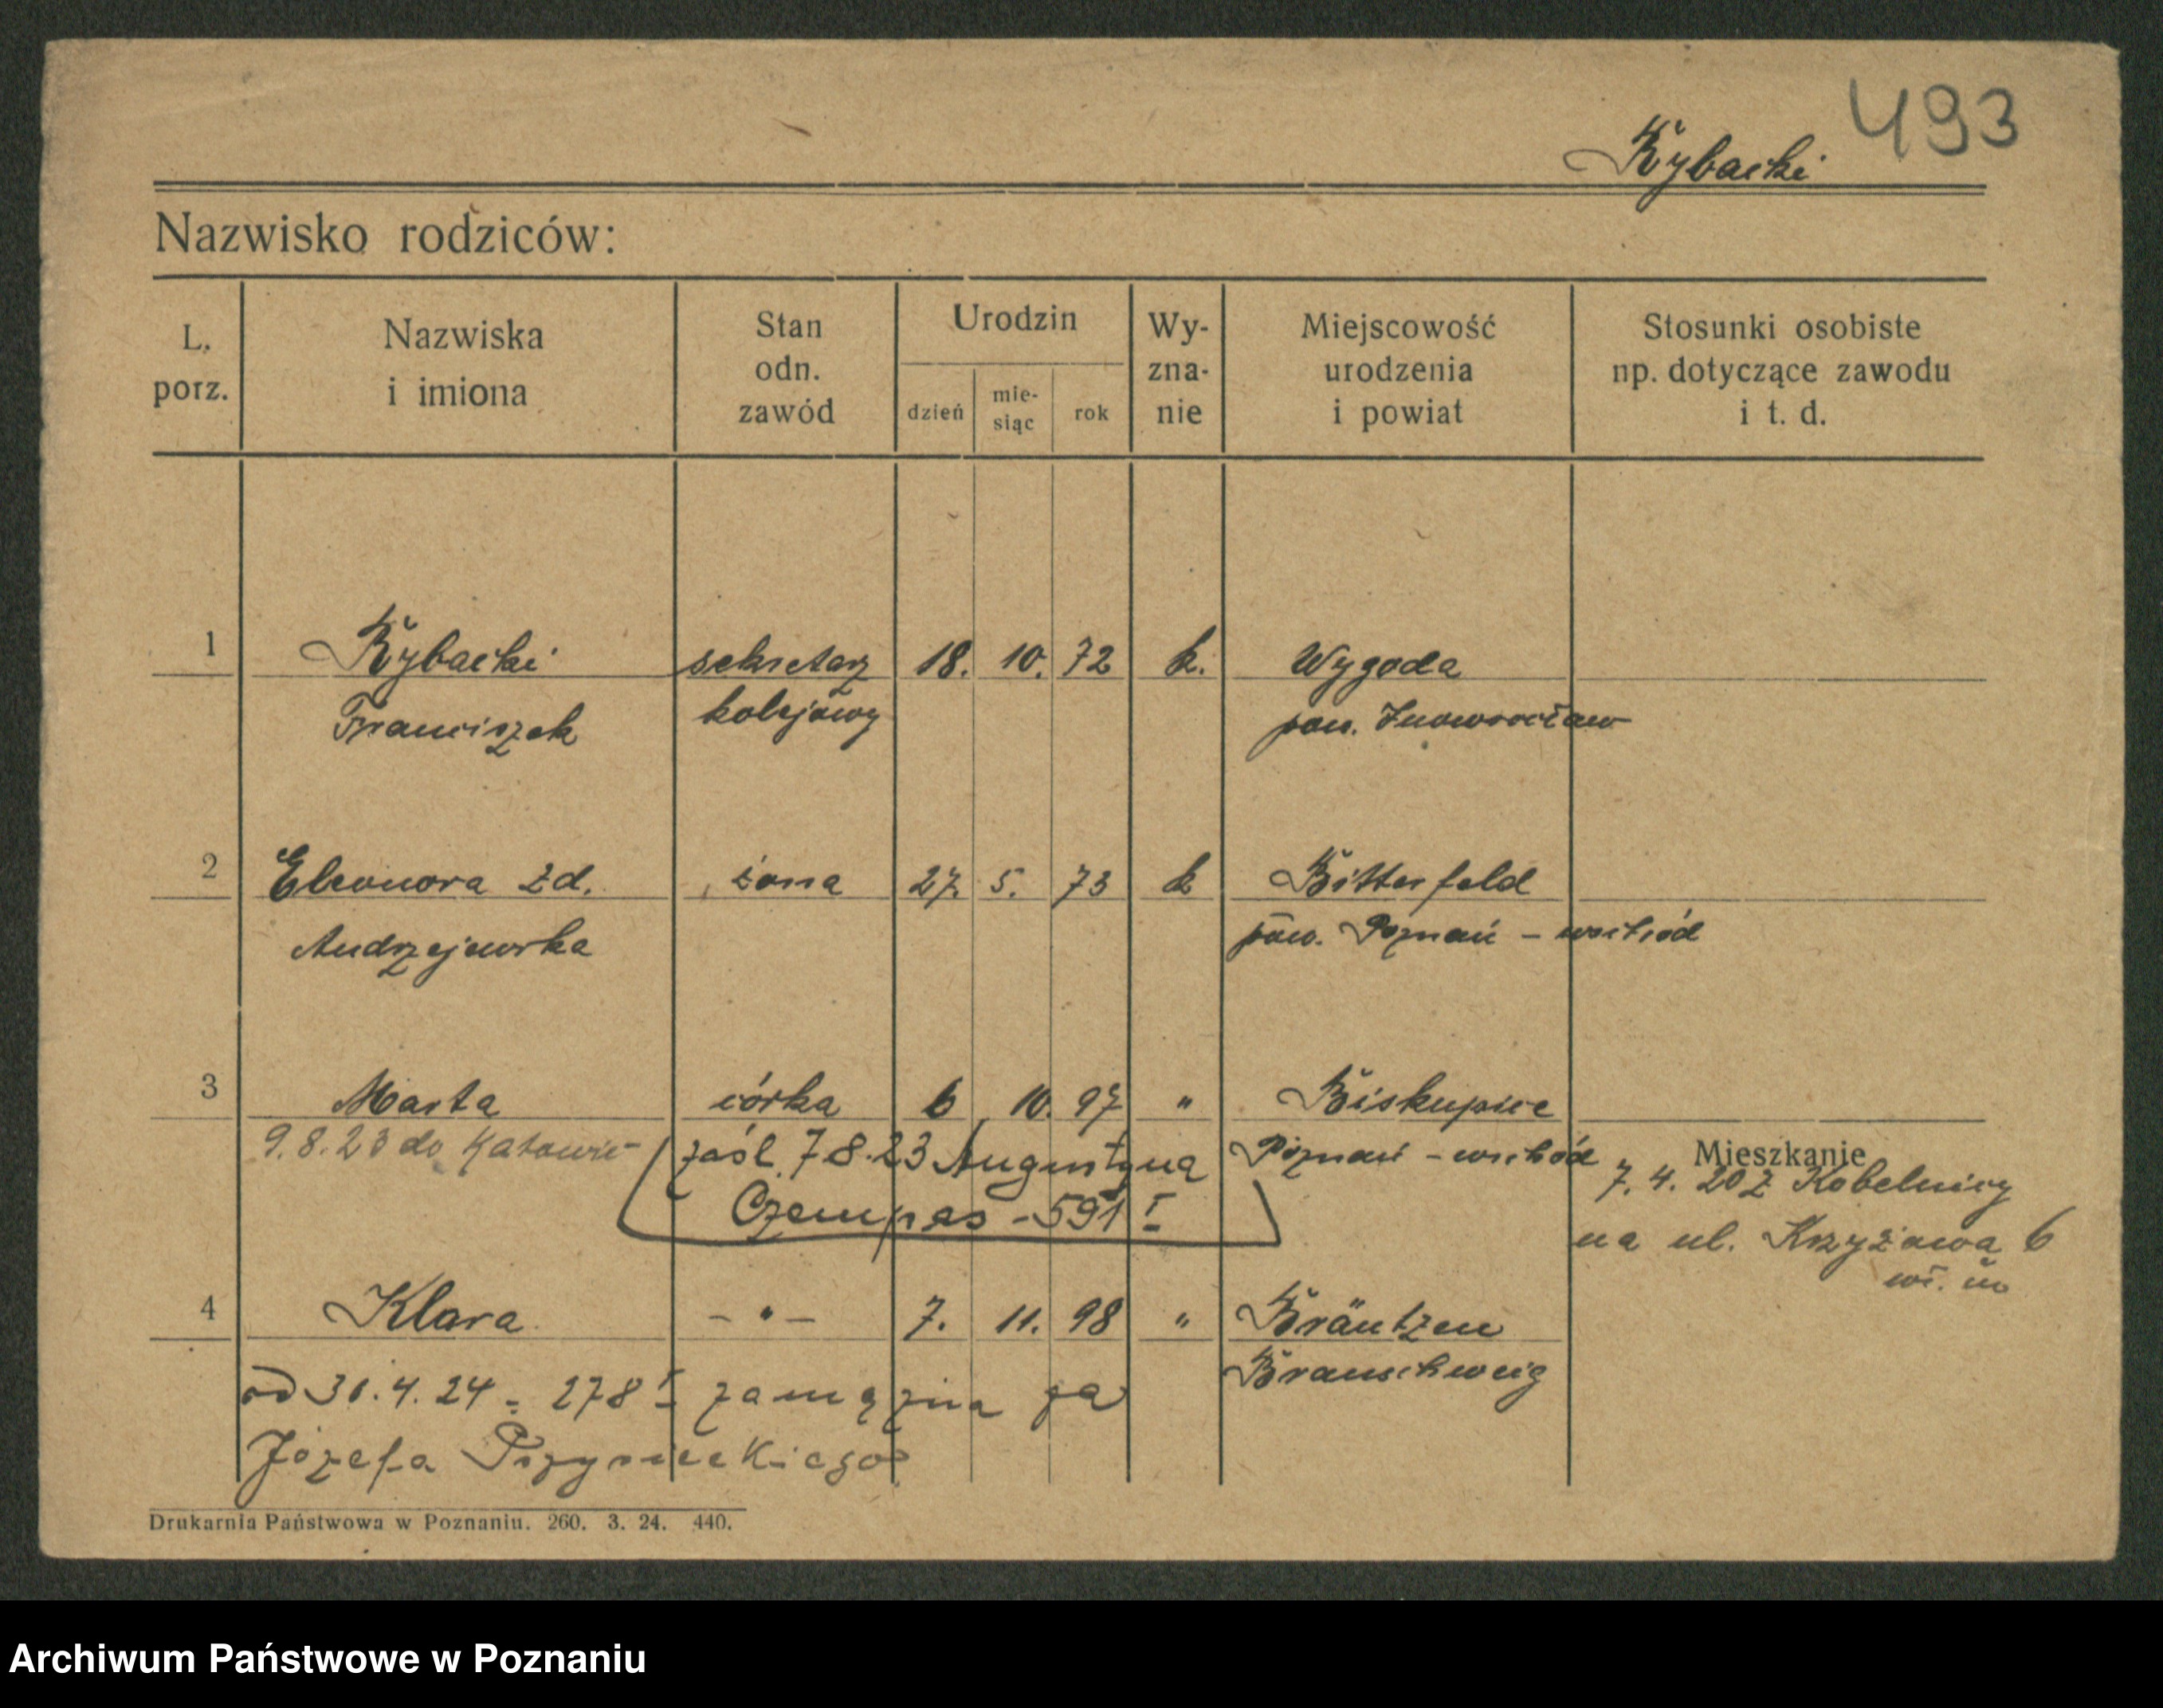 493
Rybacki
Nazwisko rodziców:
L. porz.
Nazwiska i imiona
Stan odn. zawód
Urodzin
dzień
mie-siąc
rok
Wy-zna-nie
Miejscowość urodzenia i powiat
Stosunki osobiste np. dotyczące zawodu i t. d.
1 Rybacki sekretarz 18. 10. 72 k. Wygoda
Franciszek kolejowy pow. Inowrocław
2 Eleonora zd. żona 27. 5. 73 k Bitterfeld
Andrzejewska pow. Poznań - wschód
3 Marta córka 6 10. 97 " Biskupice
9.8.23 do Katowic zaśl. 7.8.23 Augustyna Poznań - wschód
Czempas - 591 I
Mieszkanie
7. 4. 20 z Kobelnicy
na ul. Krzyżowa 6
4 Klara - " - 7. 11. 98 " Bräutzen
Braunschweig
od 30.4.24 = 278 I zamężna za
Józefa
Drukarnia Państwowa w Poznaniu. 260. 3. 24. 440.
Archiwum Państwowe w Poznaniu